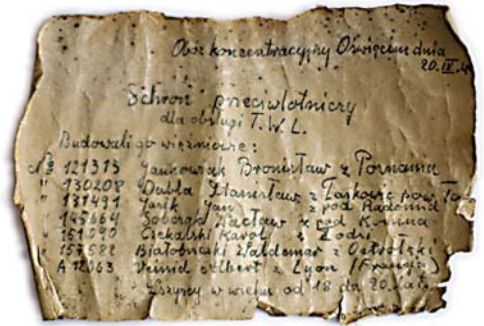 Obóz koncentracyjny Oświęcim dnia
20.IX.4
Schron przeciwlotniczy
dla obsługi T.W.L.
Budowali go więźniowie:
No 121313 Jankowiak Bronisław z Poznania
" 130208 Dubla Stanisław z Łaskowic pow. Ta
" 131491 Jasik Jan z pod Radomia
" 145664 Sobczak Wacław z pod Konina
" 151090 Czekalski Karol z Łodzi
" 157582 Białobrzeski Waldemar z Ostrołęki
A 12063 Veissid Albert z Lyon (Francja)
Wszyscy w wieku od 18 do 20 lat.